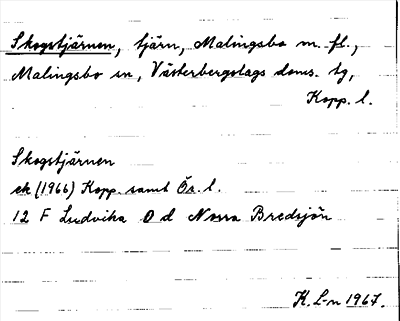 Skogstjärnen, tjärn, Malingsbo m. fl.,
Malingsbo sn, Västerbergslags doms. tg,
Kopp. l.
Skogstjärnen
ek (1966) Kopp. samt Ös. l.
12 F Ludvika 0 d Norra Bredsjön
K. L-n 1967.